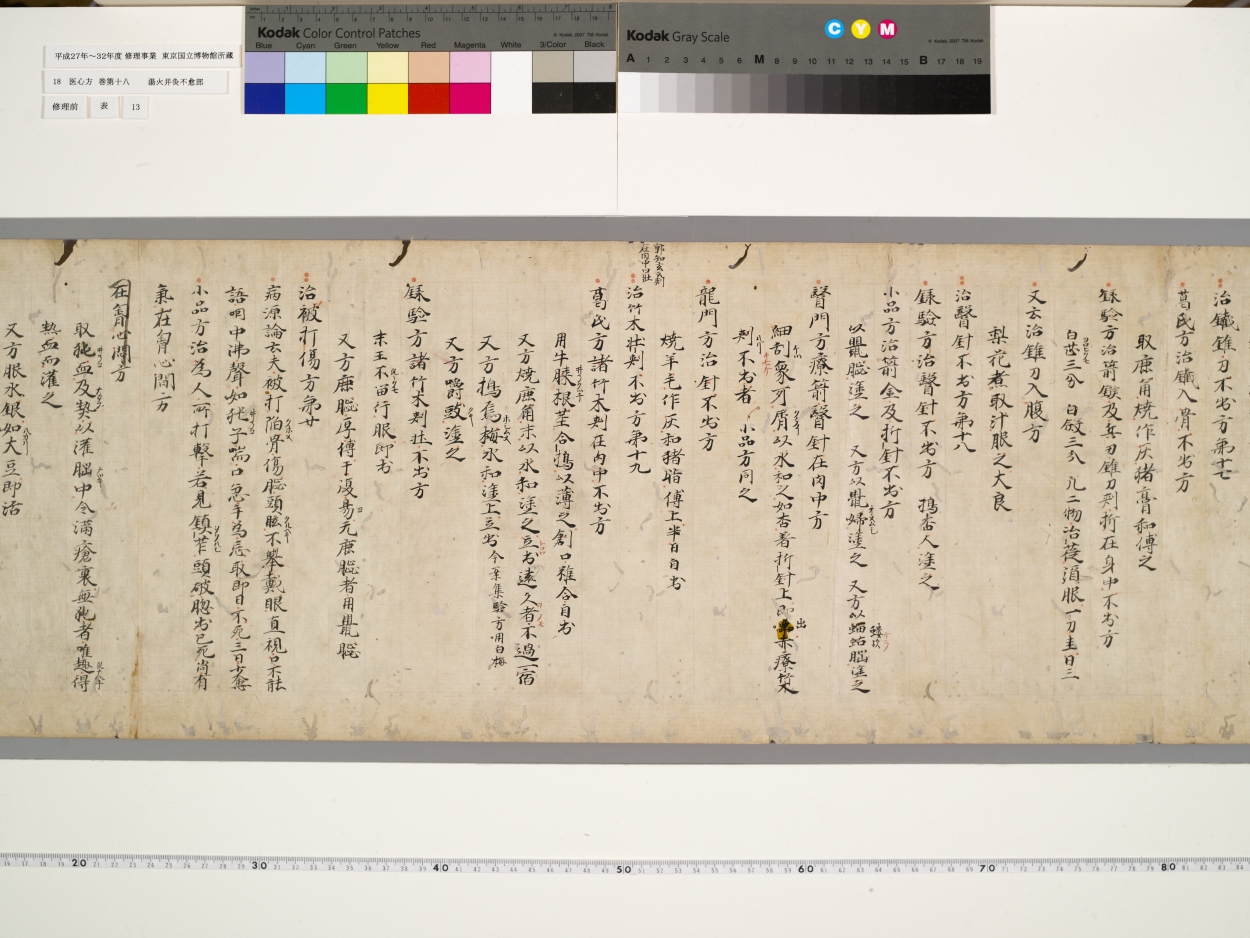 平成27年～32年度 修理事業 東京国立博物館所蔵
18 医心方 巻第十八 湯火并灸不愈部
修理前 表 13
Kodak Color Control Patches
Blue Cyan Green Yellow Red Magenta White 3/Color Black
Kodak Gray Scale
C Y M
A 1 2 3 4 5 6 M 8 9 10 11 12 13 14 15 B 17 18 19
治鐵錐刀不出方第十七
葛氏方治鐵入骨不出方
取鹿角焼作灰猪膏和傅之
録驗方治箭鏃及兵刃錐刀刺折在身中不出方
白茝三分 白斂三分 凢二物治莚須服一刀圭日三
又云治錐刀入腹方
梨花煮取汁服之大良
治醫針不出方第十八
録驗方治醫針不出方 搗杏人塗之
小品方治箭金及折針不出方
以鼠𦛁塗之 又方以鼠婦塗之 又方以蝼蛄𦛁塗之
醫門方療箭醫針在肉中方
細刮象牙屑以水和之如杏着折針上即出亦療竹木
刺不出者 小品方同之
龍門方治針不出方
焼羊毛作灰和猪脂傅上半日自出
治竹木壮刺不出方第十九
葛氏方諸竹木刺在肉中不出方
用牛膝根茎合搗以薄之創口雖合自出
又方焼鹿角末以水和塗之立出遠久者不過一宿
又方搗烏梅水和塗上立出 今案集驗方用白梅
又方嚼豉塗之
録驗方諸竹木刺壮不出方
末王不留行服即出
又方鹿𦛁厚傅干復易元鹿𦛁者用鼠𦛁
治被打傷方第廿
病源論云夫被打陷骨傷𦛁頭眩不擧戴眼直視口不能
語咽中沸聲如㹠子喘口急手為忘取即日不死三日少愈
小品方治為人所打擊若見鎮苲頭破𦛁出已死尚有
氣在胷心間方
在胷心間方
取㹠血及𭡛以灌𦛁中令滿瘡裏無㹠者唯趣得
熱血而灌之
又方服水銀如大豆即活
20 30 40 50 60 70 80